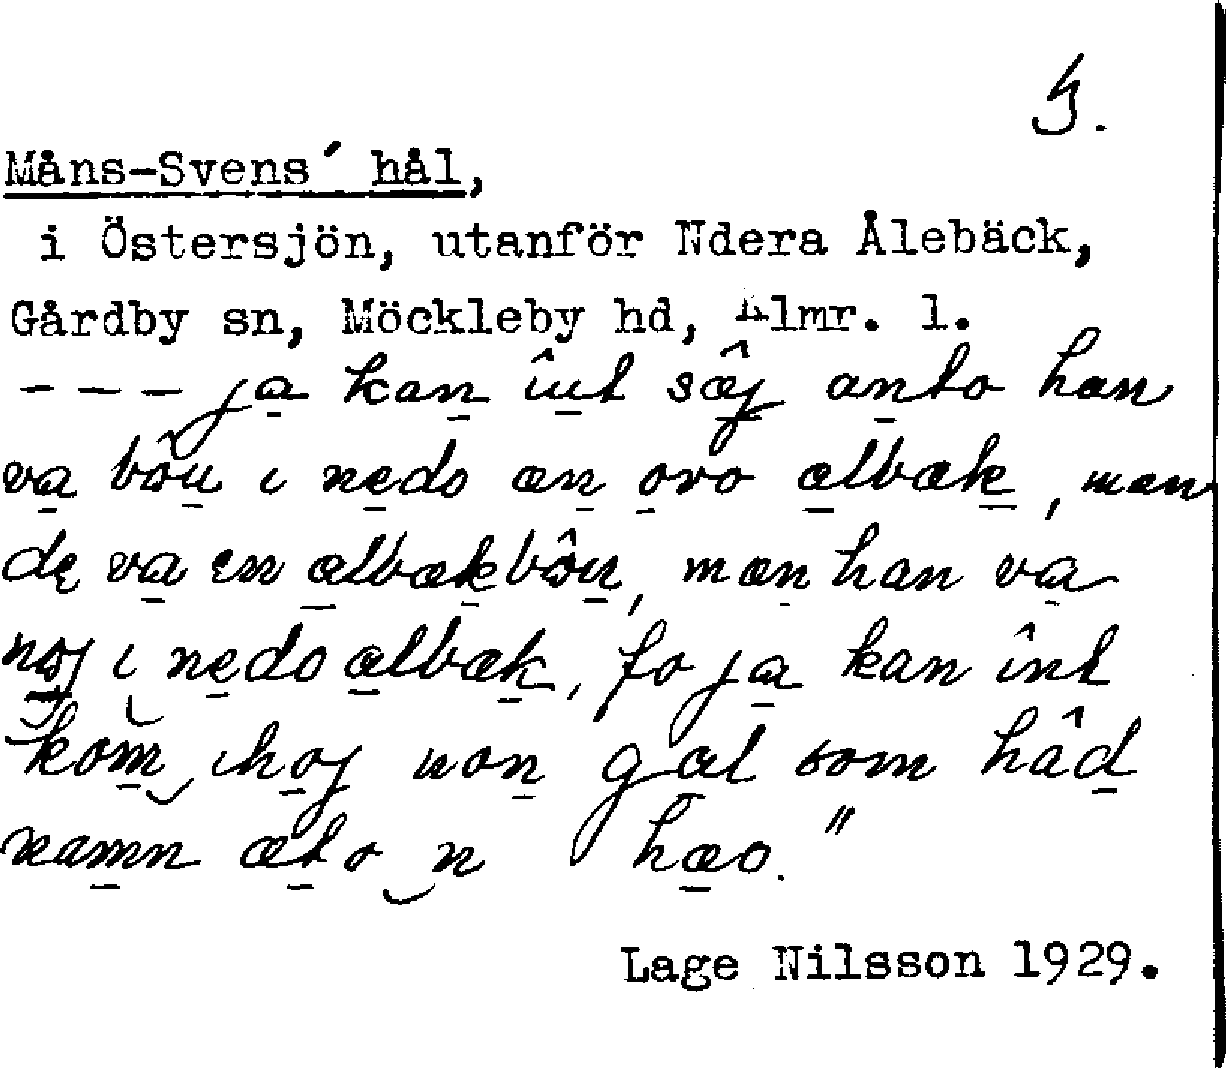 5.
Måns-Svens´ hål,
i Östersjön, utanför Ndera Ålebäck,
Gårdby sn, Möckleby hd, Klmr. l.
- - - ja kan înt sæ̂j anto han
va bôu i nedo æn ovo ælbæk, mæn
de va en ælbækbôu, mæn han va
noj i nedo ælbæk, fo ja kan înt
kom ihoj non gal som hâd
namn æto n hæo."
Lage Nilsson 1929.